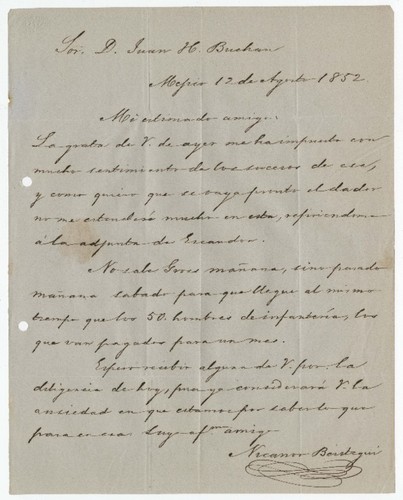 Sor. D. Juan H. Buchan
Mejico 12 de Agosto 1852
Mi estimado amigo:
La grata de V. de ayer me ha impuesto con
mucho sentimiento de los sucesos de esa,
y como quiero que se vaya pronto el dador
no me estenderé mucho en esta, refiriendome
á la adjunta de Escandon.
No sale Gores mañana, sino pasado
mañana sabado para que llegue al mismo
tiempo que los 50. hombres de infantería, los
que van pagados para un mes.
Espero recibir alguna de V. por la
diligencia de hoy, pues ya considerará V. la
ansiedad en que estamos por saber lo que
pasa en esa Suyo afmo amigo
Nicanor Béistegui